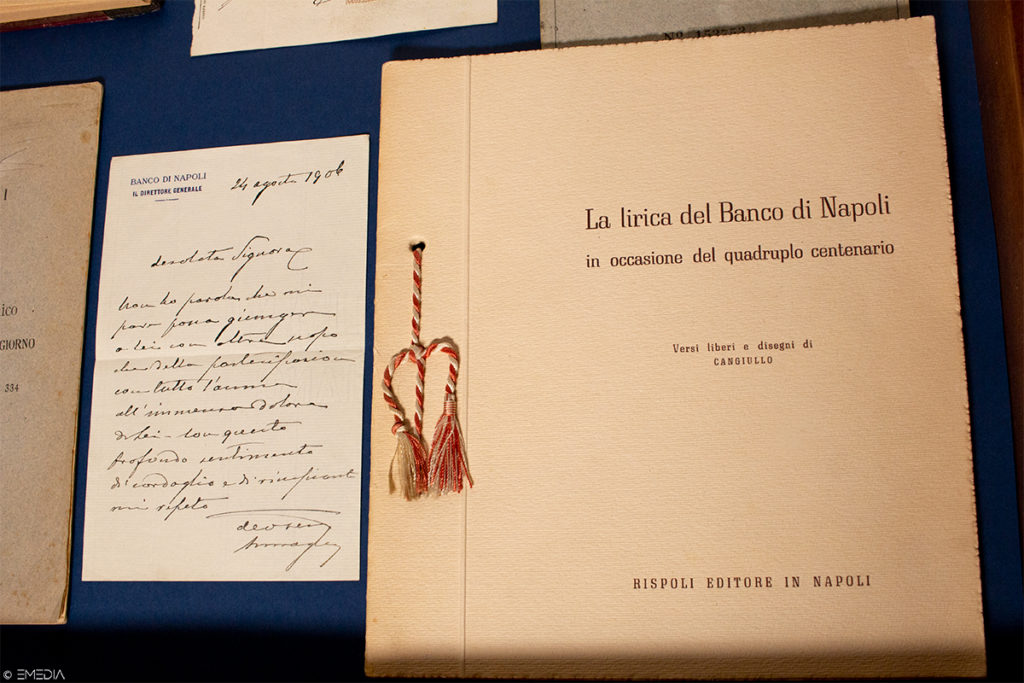 Nº 152552
I
ICO
GIORNO
334
BANCO DI NAPOLI
IL DIRETTORE GENERALE
24 agosto 1906
desolata Signora
Non ho parola che mi
para possa giungere
a Lei con altro scopo
che della partecipazione
con tutto l'anima
all'immenso dolore
di Lei - Con questo
profondo sentimento
di cordoglio e di
mi ripeto
La lirica del Banco di Napoli
in occasione del quadruplo centenario
Versi liberi e disegni di
CANGIULLO
RISPOLI EDITORE IN NAPOLI
© EMEDIA